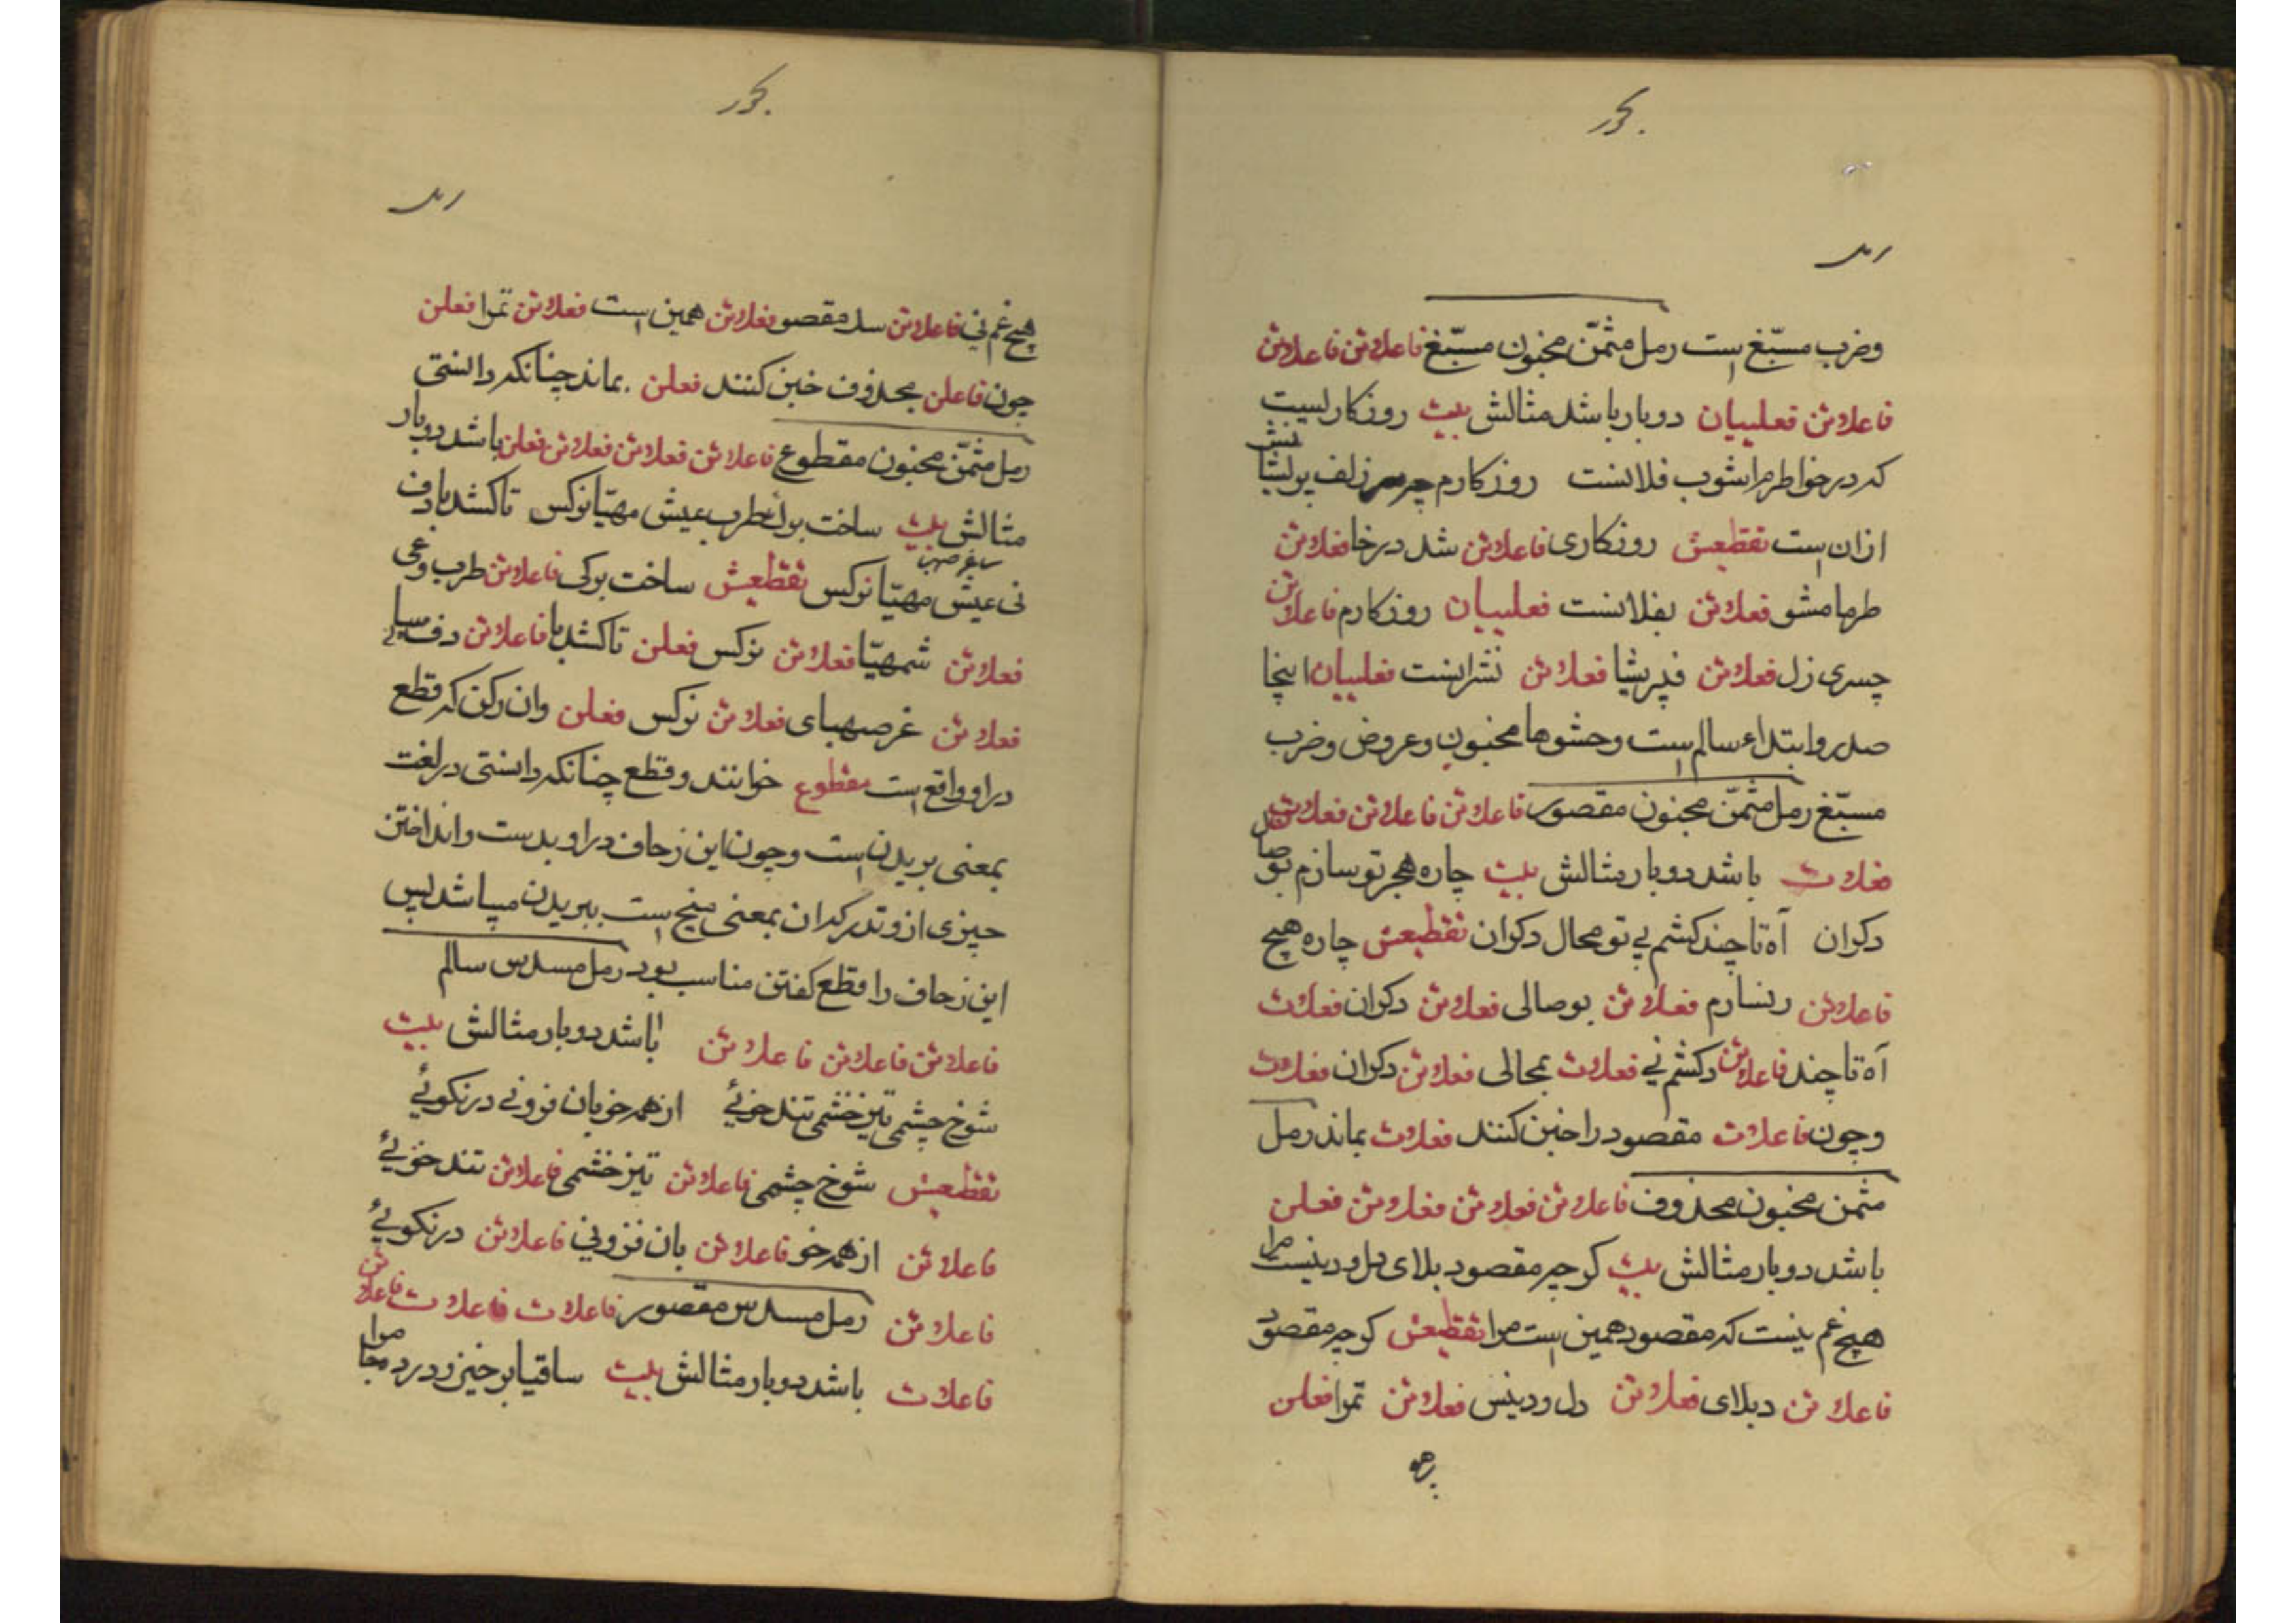 بحور
رمل
وضرب مسبّغ است رمل مثمّن مخبون مسبّغ فاعلاتن فاعلاتن
فاعلاتن فعلییان دوبار باشد مثالش بیت روزکاریست
که در خواطرم اشوب فلانست روزکارم چو سر زلف پریشا نش
ازان است تقطیعش روزکاری فاعلاتن شد در خا فعلاتن
طرما مشو فعلاتن بفلانست فعلییان روزکارم فاعلاتن
چسری زل فعلاتن فپریشا فعلاتن نشرانست فعلییان اینجا
صدر وابتداء سالم است وحشوها مخبون وعروض وضرب
مسبّغ رمل مثمّن مخبون مقصور فاعلاتن فاعلاتن فعلاتن
فعلات باشد دوبار مثالش بیت چاره هجر تو سازم بوصال
دکران آه تا چند کشم بی تو محال دکران تقطیعش چاره هیچ
فاعلاتن رتسازم فعلاتن بوصالی فعلاتن دکران فعلات
آه تا چند فاعلاتن دکشم نی فعلات بمحالی فعلاتن دکران فعلات
وچون فاعلات مقصود را خبن کنند فعلات بماند رمل
مثمن مخبون محذوف فاعلاتن فعلاتن فعلاتن فعلن
باشد دوبار مثالش بیت کرچه مقصود بلای دل ودینست مرا
هیچ غم نیست که مقصود همین است مرا تقطیعش کرچه مقصو
فاعلاتن دبلای فعلاتن دل ودینس فعلاتن تمرا فعلن
بحور
رمل
هیچ غم نی فاعلاتن سد مقصو فعلاتن همین است فعلاتن تمرا فعلن
چون فاعلن محذوف خبن کنند فعلن بماند چنانکه دانستی
رمل مثمّن مخبون مقطوع فاعلاتن فعلاتن فعلاتن فعلن باشد دوبار
مثالش بیت ساخت طرب عیش مهیّا نوکس تا کشد باده
ساغر صهبا
نی عیش مهیّا نوکس تقطیعش ساخت برکی فاعلاتن طرب وعی
فعلاتن شمهیّا فعلاتن نوکس فعلن تا کشد با فاعلاتن
فعلاتن غرصهبای فعلاتن نوکس فعلن وان رکن که قطع
در او واقع است مقطوع خوانند وقطع چنانکه دانستی در لغت
بمعنی بریدن است وچون این زحاف در او بدست وانداختن
چیزی از وتد که ان بمعنی میخ است ببریدن میباشد پس
این زحاف را قطع کفتن مناسب بود رمل مسدس سالم
فاعلاتن فاعلاتن فاعلاتن باشد دوبار مثالش بیت
شوخ چشمی تیزخشمی تندخوئی از همه خوبان فزونی در نکوئی
تقطیعش شوخ چشمی فاعلاتن تیزخشمی فاعلاتن تندخوئی
فاعلاتن از همه خو فاعلاتن بان فزونی فاعلاتن در نکوئی
فاعلاتن رمل مسدس مقصور فاعلات فاعلات فاعلاتن
فاعلات باشد دوبار مثالش بیت ساقیا برخیز ودرد